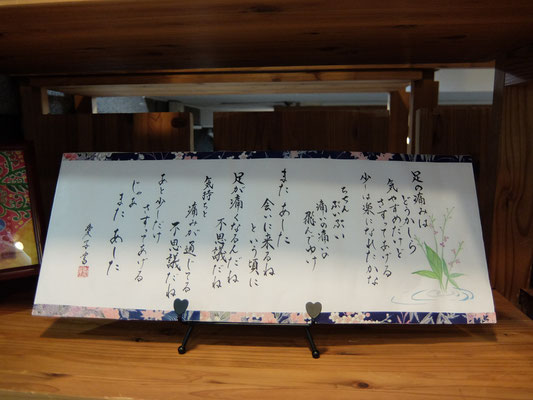 足の痛みは
どうかしら
気やすめだけど
さすってあげる
少しは楽になれたかな
ちちんぷいぷい
痛いの痛いの
飛んでいけ
また あした
会いに来るね
という頃に
足が痛くなるんだね
不思議だね
気持ちと
痛みが通じてる
不思議だね
あと少しだけ
さすってあげる
じゃあ
また あした